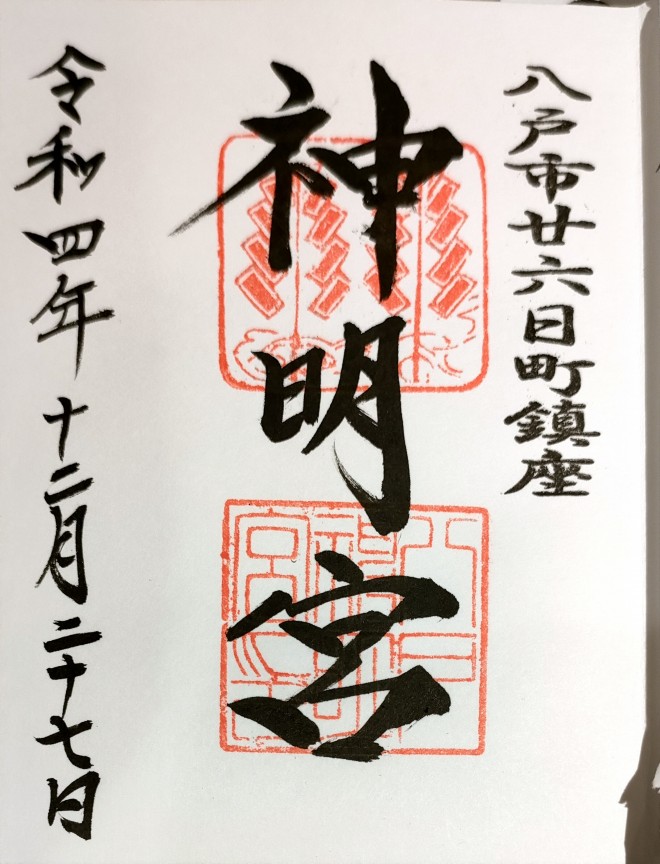 八戸市廿六日町鎮座
神明宮
令和四年十二月二十七日